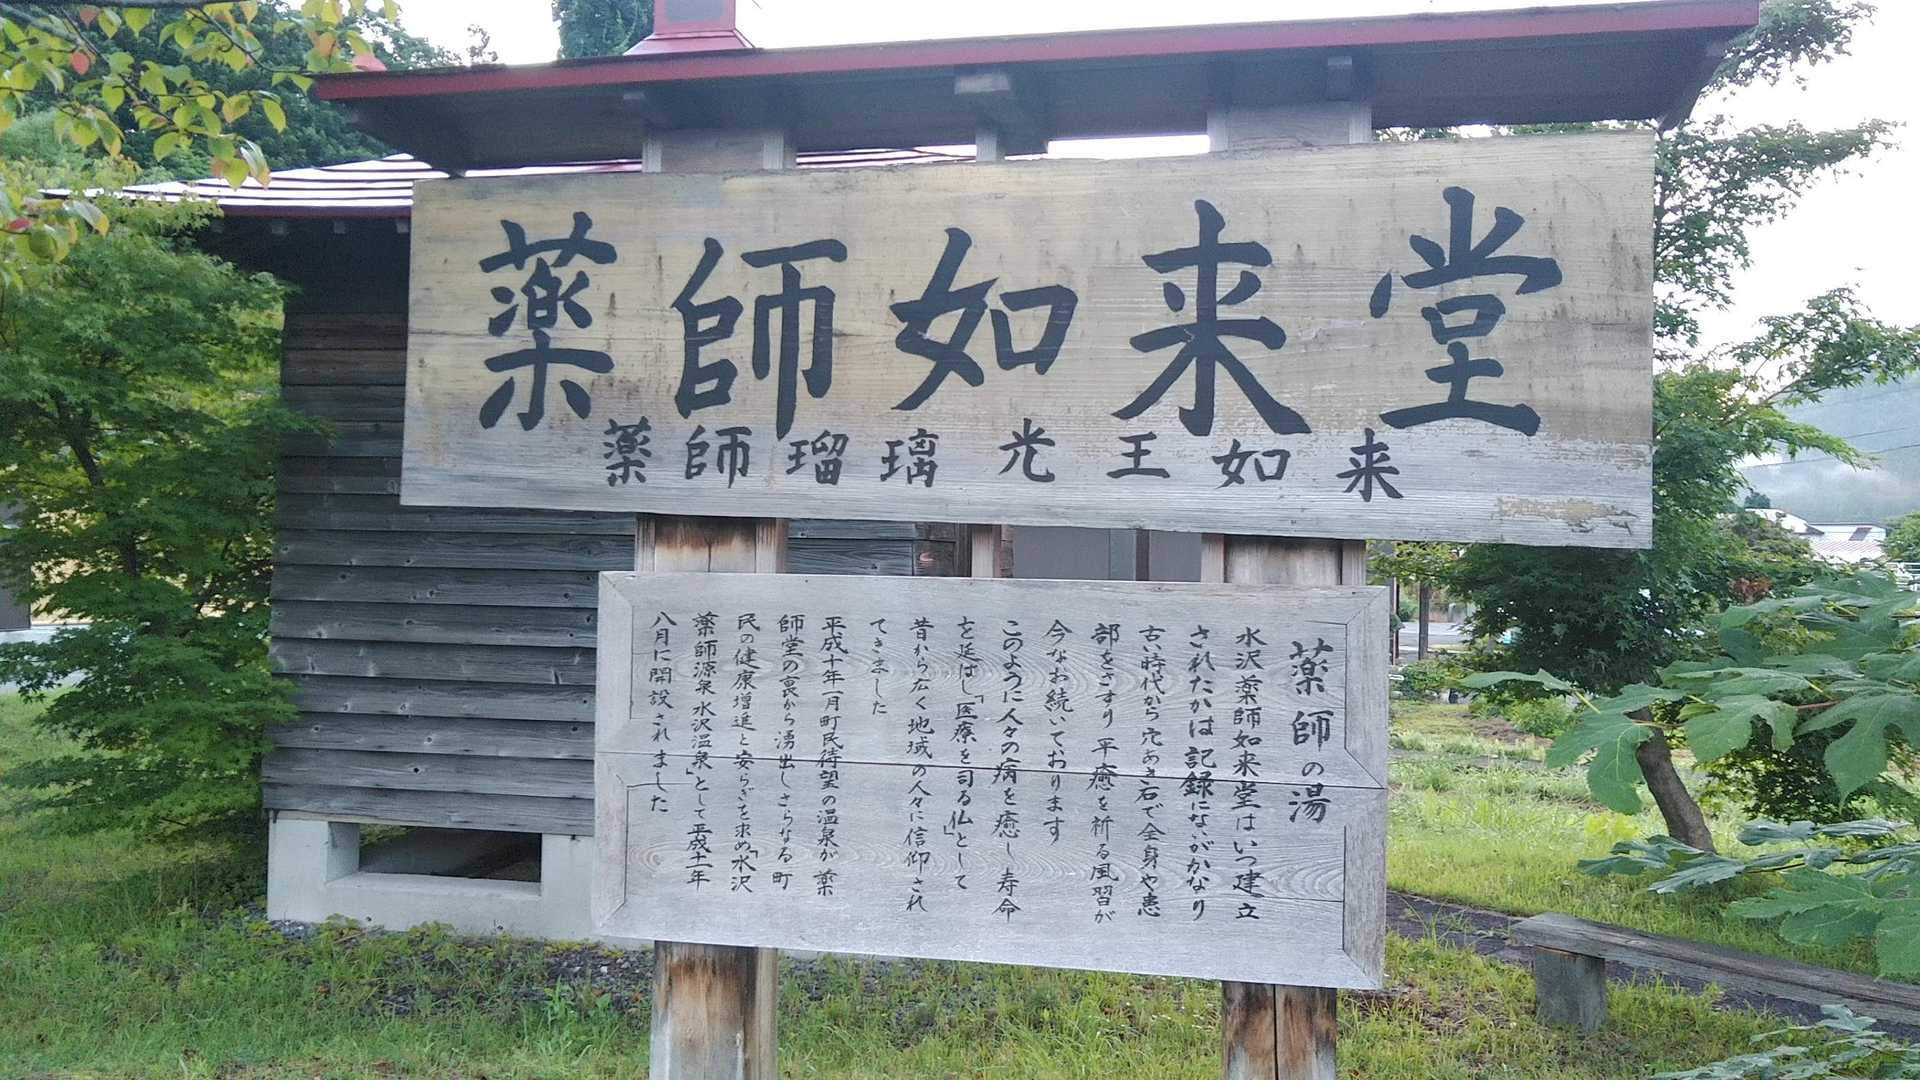 薬師如来堂
薬師瑠璃光王如来
薬師の湯
水沢薬師如来堂はいつ建立
されたかは記録にないがかなり
古い時代から穴あき石で全身や患
部をさすり平癒を祈る風習が
今なお続いております
このように人々の病を癒し寿命
を延ばし「医療を司る仏」として
昔から広く地域の人々に信仰され
てきました
平成十年一月町民待望の温泉が薬
師堂の裏から湧出しさらなる町
民の健康増進と安らぎを求め「水沢
薬師源泉水沢温泉」として平成十一年
八月に開設されました